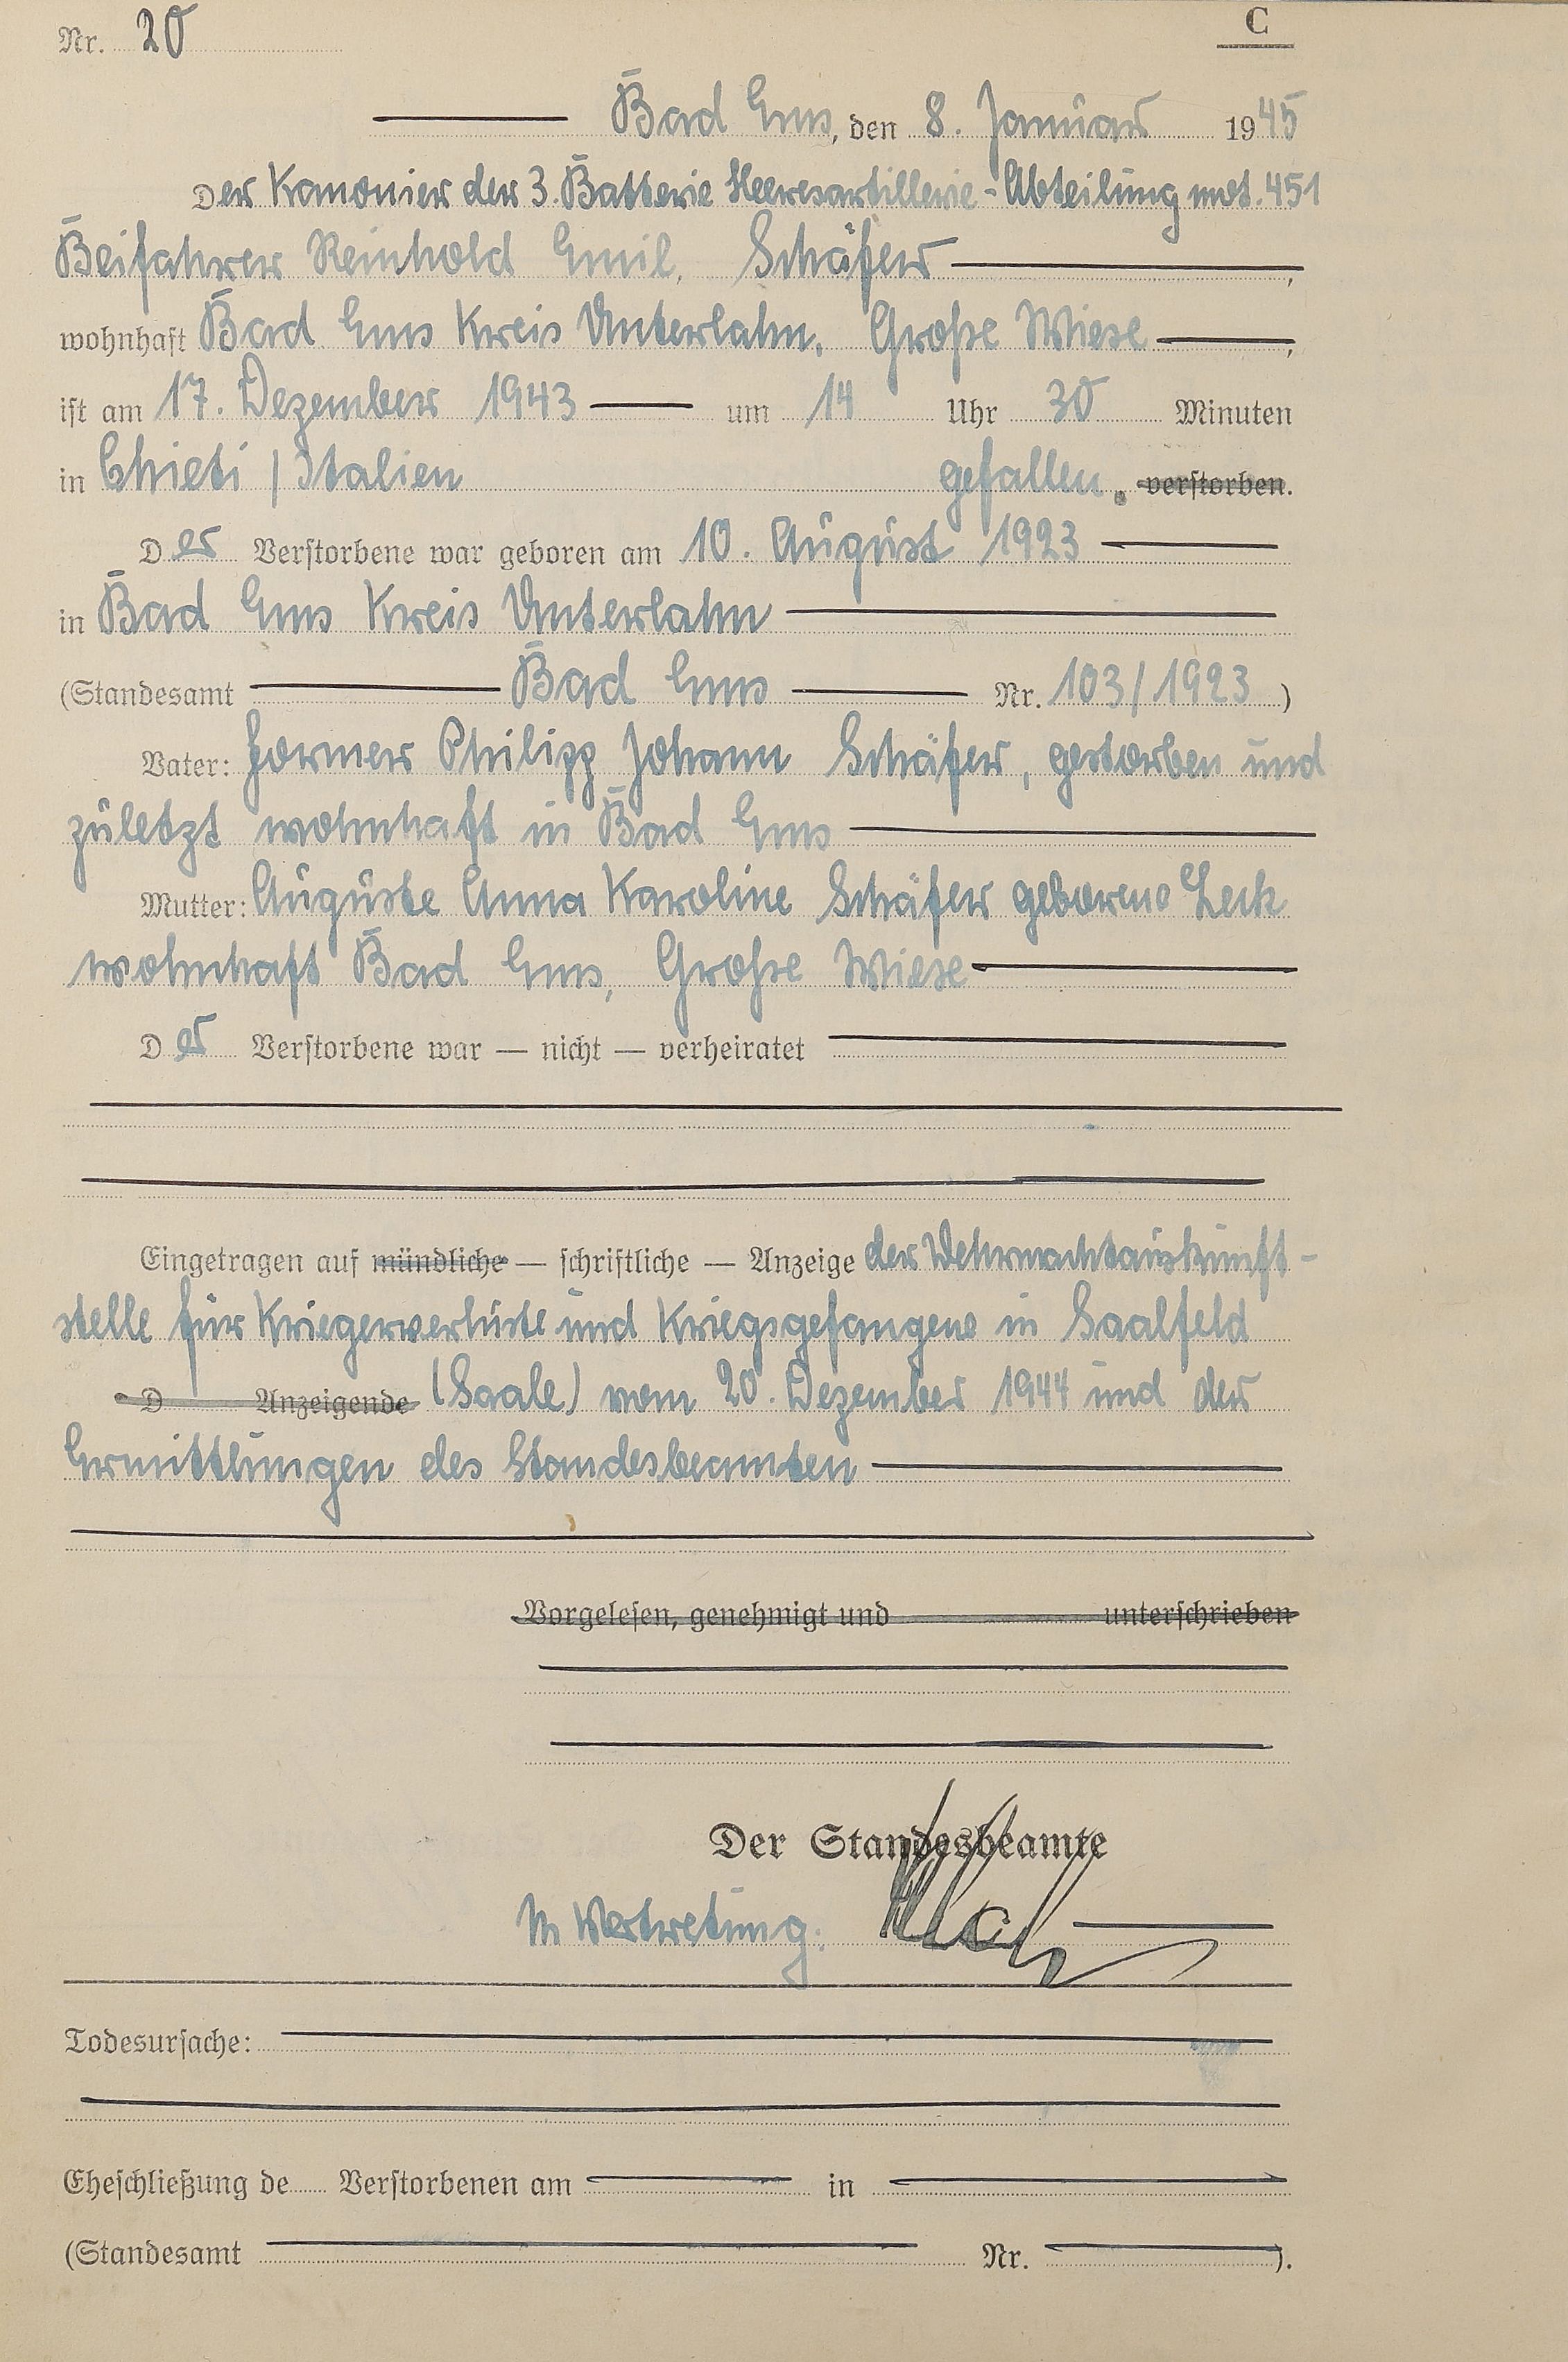 Nr. 20
C
Bad Ems, den 8. Januar 1945
Der Kanonier der 3. Batterie Heeresartillerie-Abteilung mot. 451
Beifahrer Reinhold Emil, Schäfer,
wohnhaft Bad Ems Kreis Unterlahn, Große Wiese,
ist am 17. Dezember 1943 um 14 Uhr 30 Minuten
in Chieti / Italien gefallen. verstorben.
Der Verstorbene war geboren am 10. August 1923
in Bad Ems Kreis Unterlahn
(Standesamt Bad Ems Nr. 103/1923)
Vater: Former Philipp Johann Schäfer, gestorben und
zuletzt wohnhaft in Bad Ems
Mutter: Auguste Anna Karoline Schäfer geborene Leck
wohnhaft Bad Ems, Große Wiese
Der Verstorbene war — nicht — verheiratet
Eingetragen auf mündliche — schriftliche — Anzeige der Wehrmachtauskunft-
stelle für Kriegerverluste und Kriegsgefangene in Saalfeld
D Anzeigende (Saale) vom 20. Dezember 1944 und der
Ermittlungen des Standesbeamten
Vorgelesen, genehmigt und unterschrieben
Der Standesbeamte
In Vertretung:
Todesursache:
Eheschließung de Verstorbenen am in
(Standesamt Nr. ).